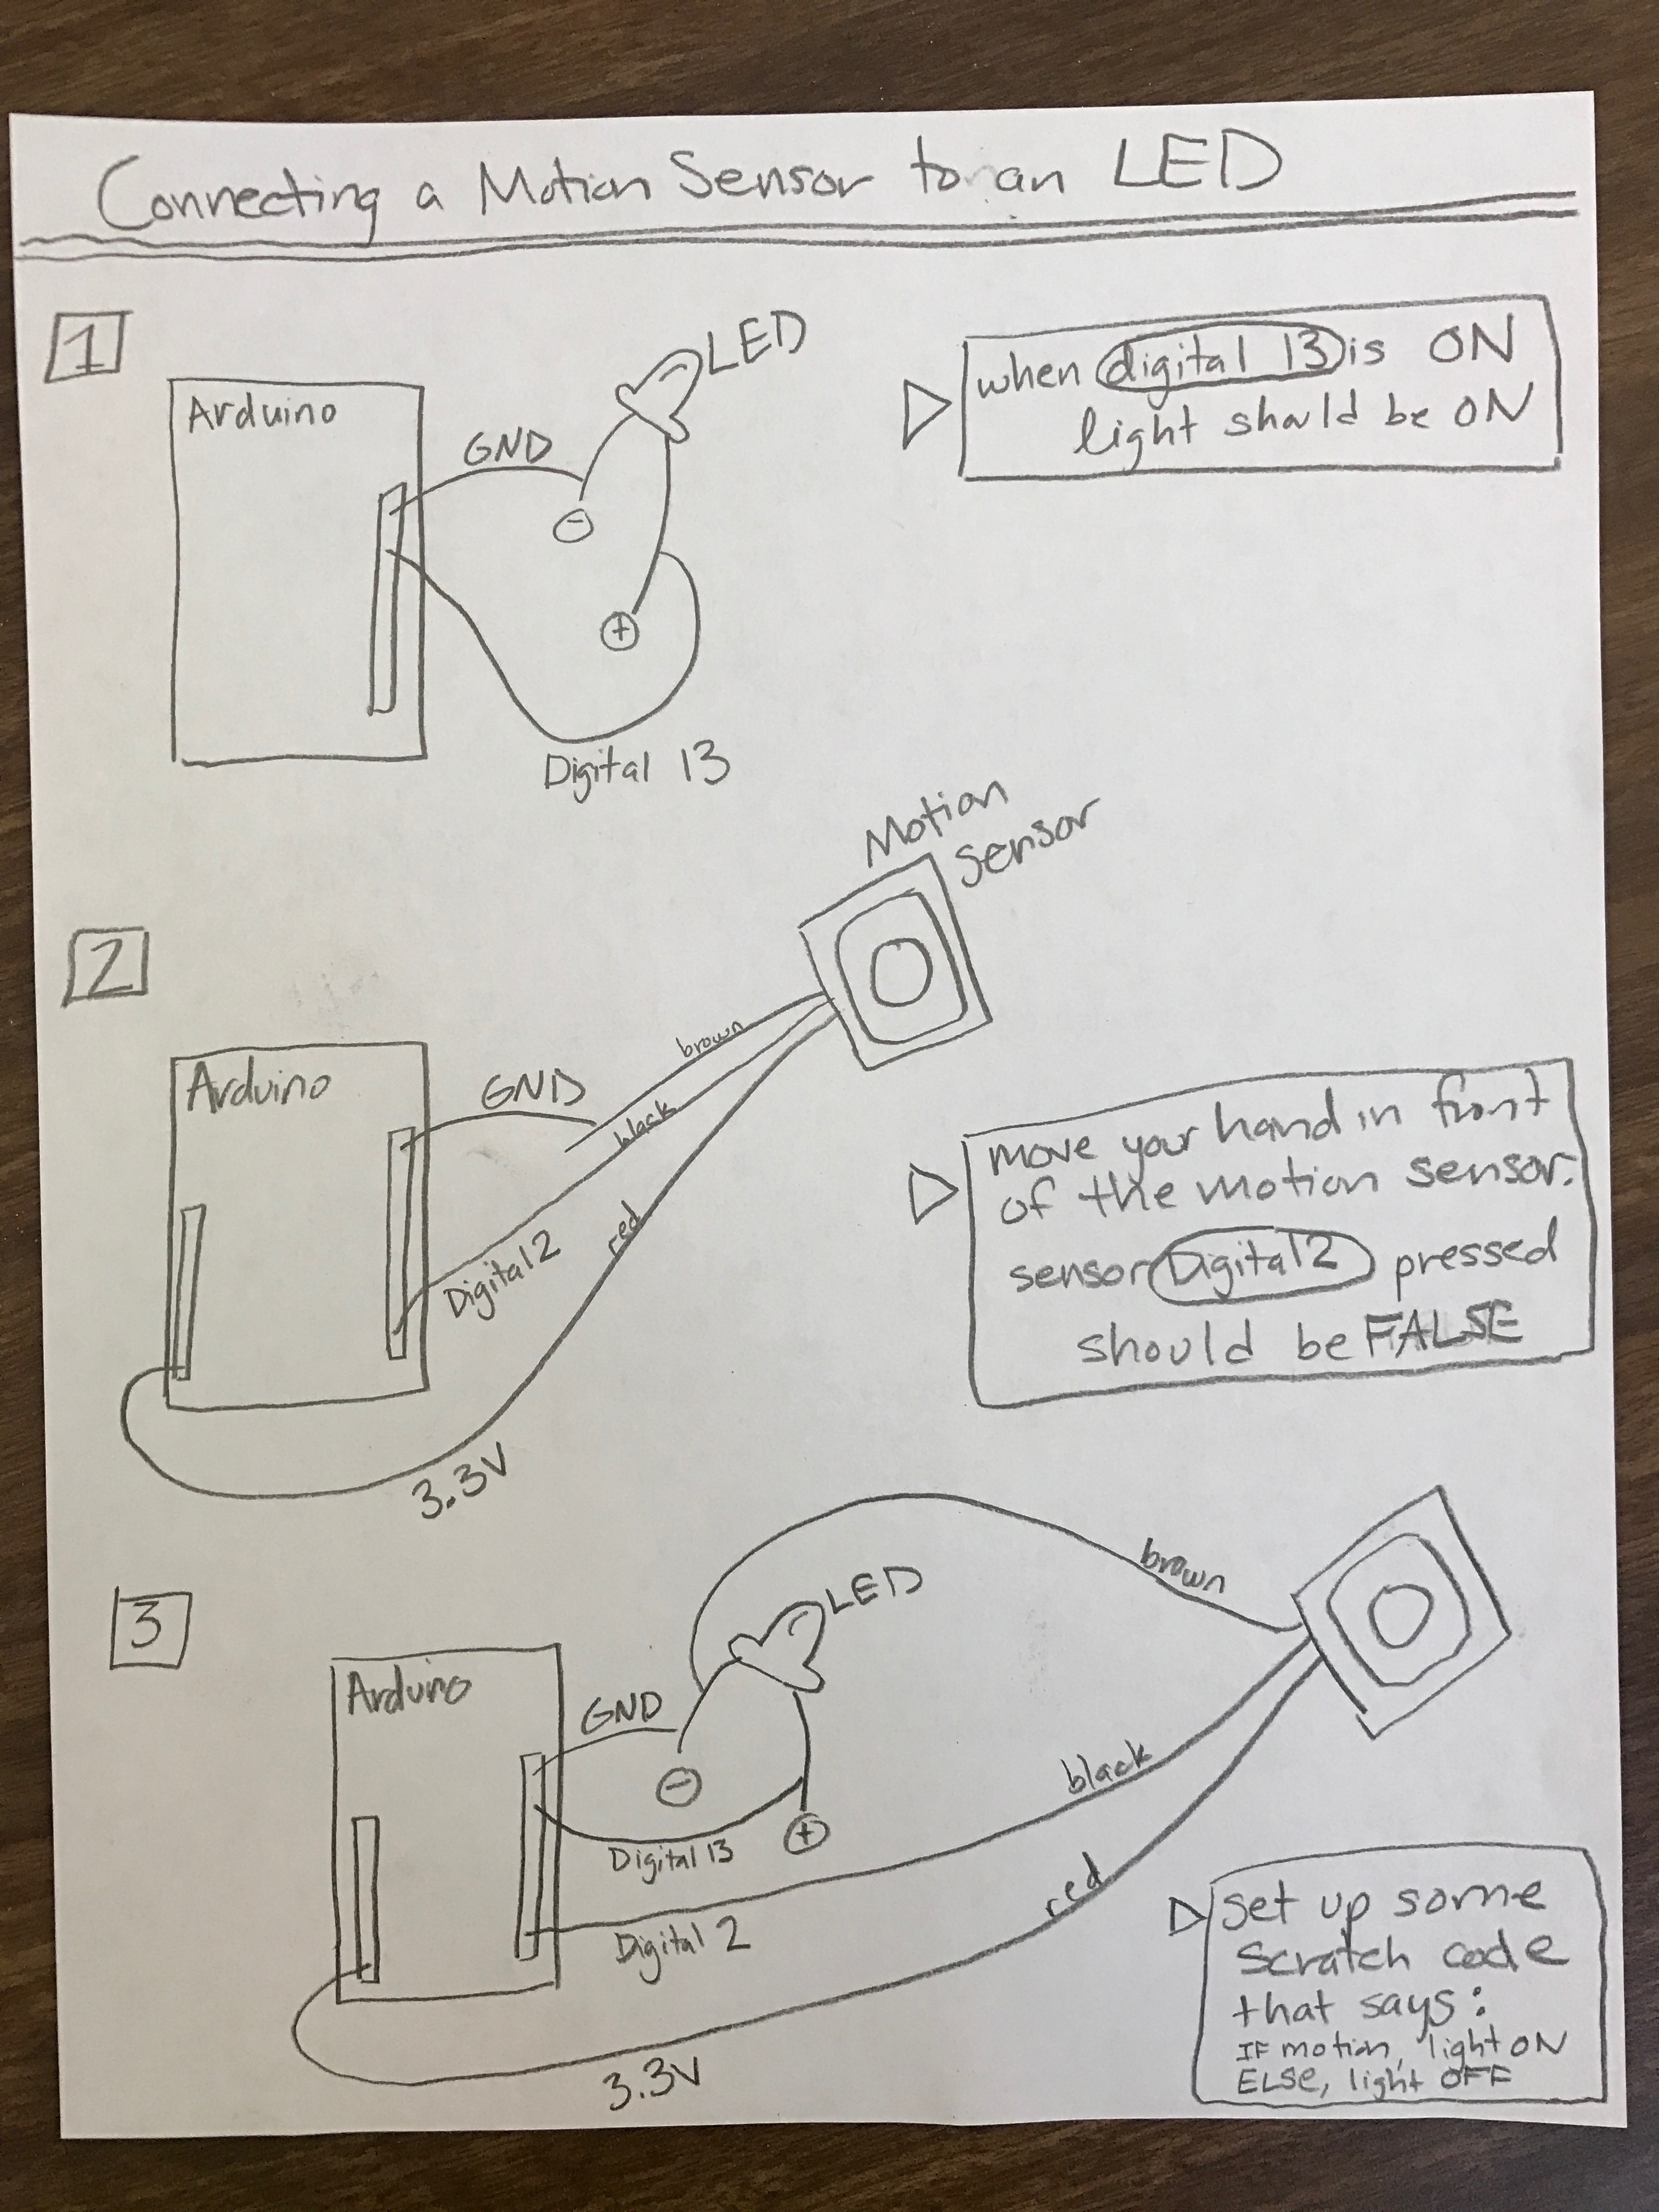 Connecting a Motion Sensor to an LED
1
LED
Arduino
GND
-
+
Digital 13
when digital 13 is ON
light should be ON
Motion
Sensor
2
Arduino
GND
brown
black
red
Digital 2
3.3V
move your hand in front
of the motion sensor.
sensor Digital 2 pressed
should be FALSE
3
LED
Arduino
GND
-
+
Digital 13
Digital 2
brown
black
red
3.3V
set up some
scratch code
that says:
IF motion, light ON
ELSE, light OFF